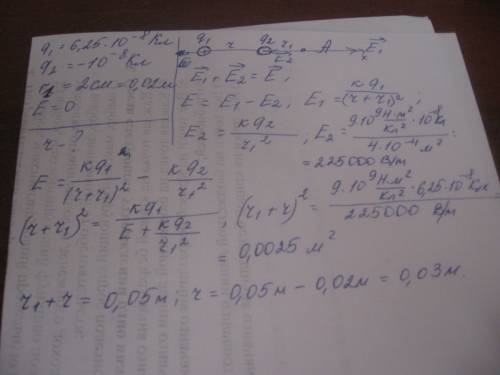 q₁ = 6,25·10⁻⁸ Кл
q₂ = -10⁻⁸ Кл
r₁ = 2см = 0,02м
E = 0
r - ?
q₁ r q₂ r₁ A E₁ x
E₂
E₁ + E₂ = E ;
E = E₁ - E₂, E₁ = kq₁/(r+r₁)² ;
E₂ = kq₂/r₁² , E₂ = 9·10⁹ Н·м²/Кл² · 10⁻⁸ Кл / 4·10⁻⁴ м² =
= 225000 В/м
E = kq₁/(r+r₁)² - kq₂/r₁²
(r+r₁)² = kq₁/(E + kq₂/r₁²) , (r₁+r)² = 9·10⁹ Н·м²/Кл² · 6,25·10⁻⁸ Кл / 225000 В/м =
= 0,0025 м²
r₁ + r = 0,05м ; r = 0,05м - 0,02м = 0,03м.